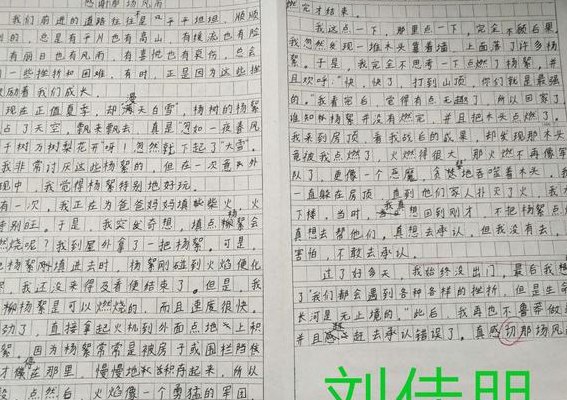 感谢那场风雨
我们前进的道路往往是一千平坦坦，顺顺
的，总是有平凡也有高山，有接流也有险
有丽日也有风雨，有喜悦也有哀伤，总会
一些挫折和困难。有时，正是因为这些挫
激励着我们成长。
现在正值夏季，却"漫天白雪"，杨树的杨絮
占了天空，飘来飘去，真是"忽如一夜春风
千树万树梨花开"呀！忽然就下起了"大雪"。
我非常讨厌这些杨絮的，但在一次意外
现中，我觉得杨絮特别地好玩。
有一次，我正在为爸爸妈妈填柴火，火
特别旺。于是，我突发奇想，填点杨絮会
燃烧呢？我到屋外拿了一把杨絮。可是，
把杨絮刚填进去时，杨絮刚碰到火焰便化
我还没来得及看便结束了。但是，我
柳杨絮是可以燃烧的，而且速度很快。
动了，直接拿起火机到外面点地上积
絮。因为杨絮常常是被房子或围栏挡住
才停在那里，慢慢地积存起来，所以
段，点然后，火焰像一个勇猛的军团，
燃完才结束。
我这点一下，那里点一下，完全不顾后果
我忽然发现一堆木头靠着墙，上面落了许多杨
絮。于是，我完全不思考一下点燃了杨絮，并
且欢呼："快，快了，打到山顶，你们就是最强
的。"我看完后，觉得有点无趣了，所以回家了
谁知杨絮并没有燃完，并且把木头点燃了。
我来到房顶，看我战后的成果，却发现那木头
竟被我点燃了，火燃得很大，那火燃不再像军
队了，更像一个恶魔，贪婪地吞噬着木头。我
一直躲在房顶，直到他们家人扑灭了火，我
下楼，当时，我真想回到刚才，不把杨絮点
真想去帮他们，真想去承认，但我没有去，
害怕，不敢去承认。
过了好多天，我始终没出门，最后我想
了"我们都会遇到各种各样的挫折，但是生命
长河是无止境的。"此后，我再也不鲁莽做
并且赶去承认错误了。真感切那场风
刘佳朋